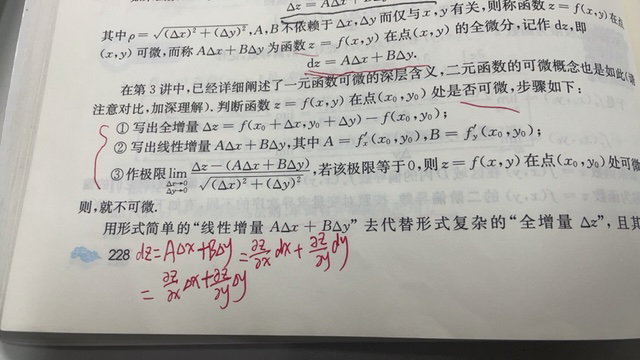 Δz=AΔx+BΔ
其中ρ=√(Δx)²+(Δy)²,A,B不依赖于Δx,Δy而仅与x,y有关,则称函数z=f(x,y)在点
(x,y)可微,而称AΔx+BΔy为函数z=f(x,y)在点(x,y)的全微分,记作dz,即
dz=AΔx+BΔy.
在第3讲中,已经详细阐述了一元函数可微的深层含义,二元函数的可微概念也是如此(请
注意对比,加深理解).判断函数z=f(x,y)在点(x₀,y₀)处是否可微,步骤如下:
①写出全增量Δz=f(x₀+Δx,y₀+Δy)-f(x₀,y₀);
②写出线性增量AΔx+BΔy,其中A=f′ₓ(x₀,y₀),B=f′ᵧ(x₀,y₀);
③作极限lim Δx→0 Δy→0 Δz-(AΔx+BΔy)/√(Δx)²+(Δy)²,若该极限等于0,则z=f(x,y)在点(x₀,y₀)处可微
则,就不可微.
用形式简单的“线性增量AΔx+BΔy”去代替形式复杂的“全增量Δz”,且其
228 dz=AΔx+BΔy=∂z/∂x dx+∂z/∂y dy
=∂z/∂x Δx+∂z/∂y Δy